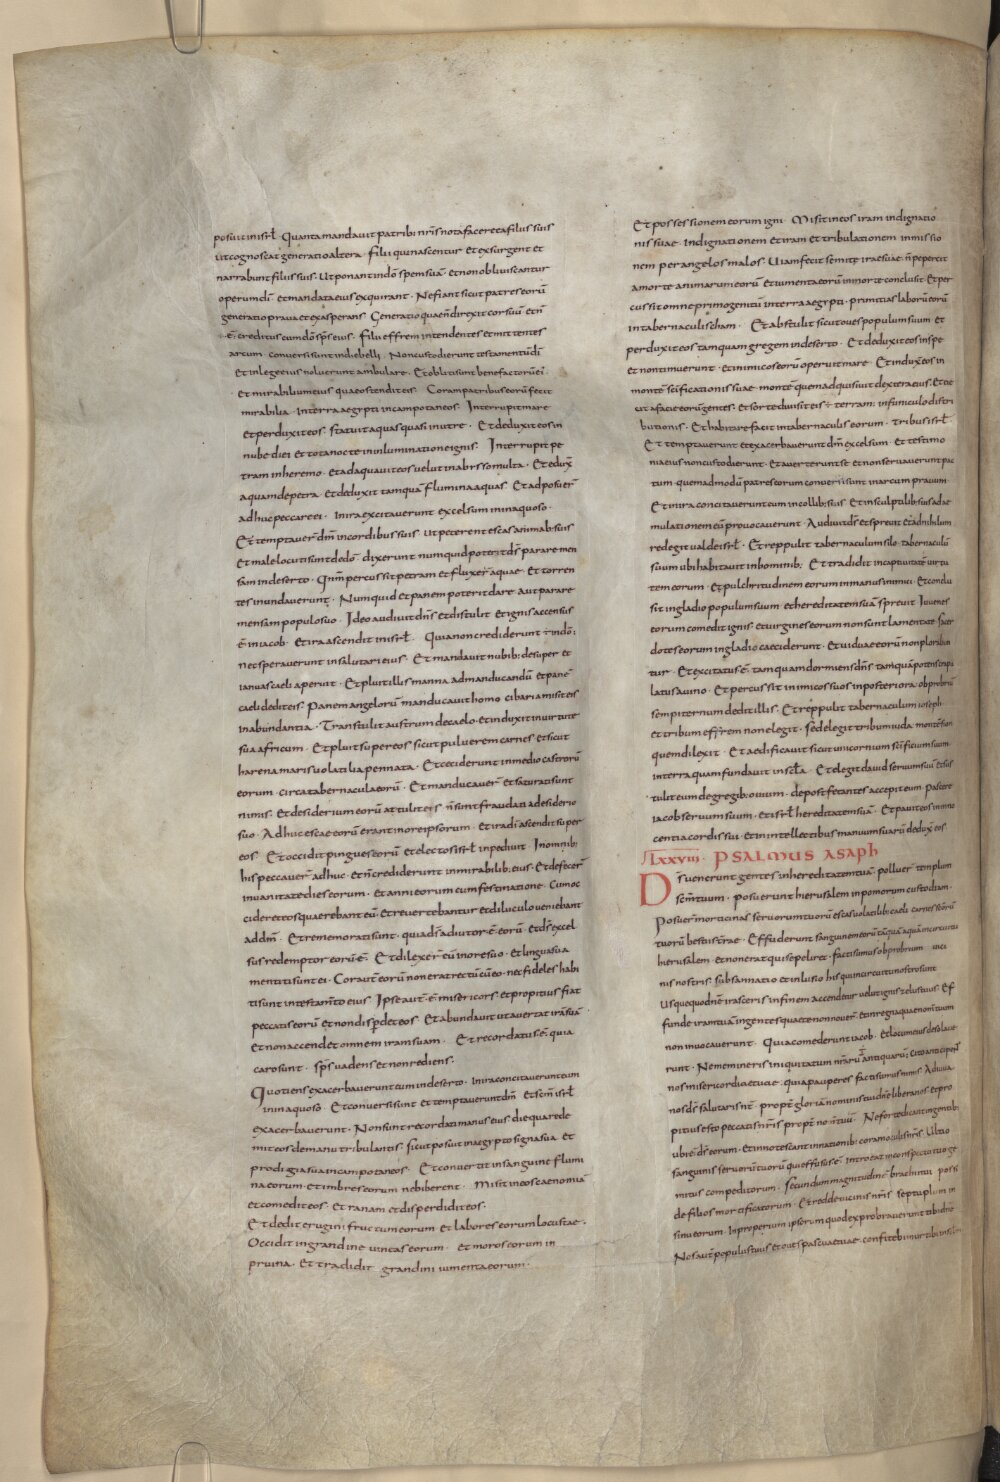 posuit inisrł. Quantamandauit patribus nr̄is notafacereeafiliis suis
utcognoscat generatioaltera. Filii quinascentur Etexsurgent et
narrabuntfiliissuis. Utponant indō spemsuā etnon obliuiscantur
operumdi etmandataeius exquirant. Nefiant sicut patreseorū
generatio prauaetexasperans. Generatio quaeñdirexit corsuū etñ
ē creditus cumdō sp̄s eius. Filii effrem intendentes etmittentes
arcum. conuersisunt indiebelli. Noncustodierunt testamentūdī
Et inlegeeius noluerunt ambulare. Etoblitisunt benefactorūei
Et mirabiliumeius quaeostenditeis. Corampatribuseorū fecit
mirabilia. Interraaegypti incampotaneos. Interrupitmare
etperduxiteos. statuitaquasquasi inutre. Et deduxiteosin
nube diei Ettotanocte ininluminationeignis. Interrupit pe
tram inheremo. Etadaquauiteosuelut inabyssomulta. Etedux̄
aquamdepetra. Etdeduxit tamquā flumina aquas. Et adposuer̄
adhucpeccareei. Iniraexcitauerunt excelsum ininaquoso.
Et temptauer̄ dm̄ incordibussuis. ut peterent escas animab;suis
Et malelocutisuntdedō. dixerunt numquidpoterit ds̄ parare men
sam indeserto. Qnm̄ percussitpetram etfluxer̄ aquae. Et torren
tes inundauerunt. Numquid etpanem poterit dare aut parare
mensam populosuo. Ideo audiuit dn̄s etdistulit Etignis accensus
ē iniacob. Etira ascendit inisrł. Quianoncrediderunt indō:
necsperauerunt insalutarieius. Et mandauit nubib;desuper et
ianuascaeli aperuit. Etpluitillis manna admanducandū Etpanē
caeli dediteis. Panem angelorū manducauit homo. cibariamisiteis
inabundantia. Transtulit austrum decaelo. Etinduxit inuirtute
sua africum. Etpluit supereos sicut puluerem carnes. Etsicut
harena maris uolatilia pennata. Etceciderunt inmedio castrorū
eorum. circatabernaculaeorū. Et manducauer̄ etsaturatisunt
nimis. Et desiderium eorū attuliteis n̄sunt fraudati adesiderio
suo. Adhucescaeeorū erant inoreipsorum. Etiradī ascenditsuper
eos Etoccidit pingueseorū Etelectosisrł inpediuit. Inomnib;
hispeccauer̄ adhuc. Etñcrediderunt inmirabilib; eius. Etdefecer̄
inuanitatedies eorum. Et annieorum cumfestinatione. Cumoc
cideretcosquaerebant eū. Etreuertebantur etdiluculo ueniebant
addm̄. Etrememoratisunt. quiads̄ adiutor ē eorū. Etds̄ excel
sus redemptor eorū ē. Et dilexer̄ eū inoresuo. Et linguasua
mentitisuntei. Coraut̄eorū non erat rectū cū eo. necfideles habi
tisunt intestam̄to eius. Ipse aut̄ ē misericors etpropitius fiat
peccatiseorū etnondisp̄deteos. Etabundauit ut auertat irāsuā
Etnonaccendetomnem iramsuam. Etrecordatusē quia
carosunt. sp̄s uadens et nonrediens.
Quotiens exacerbauerunt eum indeserto. Iniraconcitauerunteum
ininaquoso. Etconuersisunt Et temptaueruntdm̄. Etscm̄ isrł
exacerbauerunt. Nonsunt recordatimanus eius diequarede
miteosdemanu tribulantis. sicut posuit inaegypto signasua Et
prodigiasuaincampotaneos. Etconuertit insanguine flumi
naeorum. et imbreseorum nebiberent. Misit ineoscaenomiā
etcomediteos. Et ranam etdisperdiditeos.
Et dedit erugini fructumeorum Et laboreseorumlocustae.
Occidit ingrandine uineaseorum. et moroseorum in
pruina. Et tradidit grandini iumentaeorum.
Et possessionem eorum igni. Misit ineos iram indignatio
nis suae. indignationem etiram et tribulationem inmissio
nem per angelos malos. Uiamfecit semitę iraesuae. n̄ pepercit
amorte animarum eorū Etiumentaeorū inmorte conclusit. Et per
cussit omne primogenitū interraaegypti. primitias laborūeorū
intabernaculischam. Etabstulit sicutoues populumsuum et
perduxiteos tamquam gregem indeserto. Et deduxiteos inspe
et nontimuerunt. etinimicoseorū operuitmare. Et induxeos in
montē scificationissuae. montē quemadquisiuit dexteraeius. Eteie
cit afacieeorūgentes. Etsortediuisiteis terram: infuniculo distri
butionis. Ethabitarefacit intabernaculis eorum. tribusisrł
Et temptauerunt etexacerbauerunt dm̄ excelsum. Et testimo
niaeius noncustodierunt. Etauerteruntsē etnonseruauerunt pac
tum. quemadmodū patreseorum conuersisunt inarcum prauum.
Et inira concitauerunt eum incollib;suis. Et insculptilib;suisadae
mulationem eū prouocauerunt. Audiuitds̄ etspreuit etadnihilum
redegit ualdeisrł. Etreppulit tabernaculumsilo. tabernaculū
suum ubi habitauit inhominib; Et tradidit incaptiuitatē uirtu
tem eorum. Et pulchritudinem eorum inmanusinimici. Etconclu
sit ingladio populumsuum. etheredatatemsuā spreuit. Iuuenes
eorum comedit ignis. Etuirgineseorum nonsunt lamentate. sacer
doteseorum ingladio caeciderunt. Etuiduaeeorū nonplorabun
tur. Etexcitatusē. tamquamdormiensdn̄s tamquāpotenscrapu
latusauino. Etpercussit inimicossuos inposteriora. obprobriū
sempiternum dedit illis. Etreppulit tabernaculum ioseph
et tribum effrem nonelegit. sedelegit tribumiuda. montēsion
quemdilexit. Et aedificauit sicutunicornium scificiumsuum
interraquamfundauit insc̄la. Etelegit dauid seruumsuū etsus
tuliteumdegregib;ouium. depostfetantes accepiteum. pascere
iacobseruumsuum. etisrł hereditatemsuā. Etpauiteosininno
centiacordissui. Etinintellectibus manuumsuarū deduxeos
LXXVIII. PSALMUS ASAPH
Ds̄ uenerunt gentes inhereditatemtuā polluer̄ templum
scm̄tuum. posuerunt hierusalem inpomorum custodiam.
Posuer̄ morticinas seruorumtuorū escasuolatilib;caeli carnesscōrū
tuorū bestiisterrae. Effuderunt sanguinemeorū tāquā aquā incircuitu
hierusalem. etnoneratquisepeliret. factisumus obprobrium uici
nis nostris. subsannatio etinlusio hisquiincircuitunostrosunt
Usquequodn̄e irasceris infinem accendetur uelut ignis zelustuus. Ef
funde iramtuā ingentesquaetenonnouer̄. Etinregnaquaenomētuum
non inuocauerunt. Quiacomederunt iacob. Etlocumeius desolaue
runt. Nememineris iniquitatum nr̄arū antiquarū; cito anticipent
nos misericordiaetuae. quiapauperes factisumusnimis. Adiuua
nosds̄ salutaris nr̄. propt̄ gloriā nominis tuidn̄e liberanos. etpro
pitiusesto peccatis nr̄is propt̄ nom̄tuū. Nefortedicantingentib;
ubi ē ds̄ eorum. Etinnotescant innationib; coramoculisnr̄is. Ultio
sanguinis seruorūtuorū quieffusus ē. introeat inconspectutuoge
mitus compeditorum. Secundum magnitudinē brachiitui possi
de filios mortificatorum. Etreddeuicinis nr̄is septuplum in
sinueorum. Inproperium ipsorum quodexprobrauerunt tibidn̄e
Nosaut̄ populustuus etoues pascuaetuae. confitebimurtibi